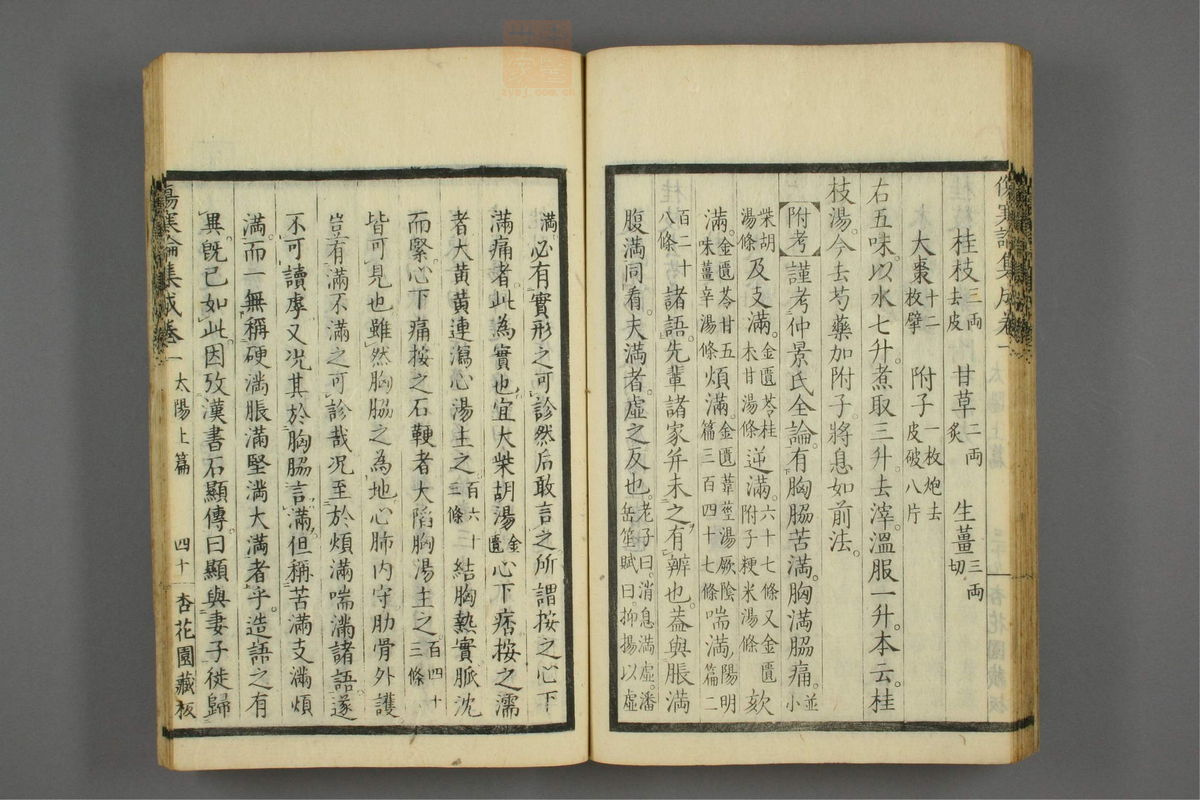 傷寒論集成卷一
桂枝三両去皮 甘草二両炙 生薑三両切
大棗十二枚擘 附子一枚炮去皮破八片
右五味。以水七升。煮取三升。去滓。溫服一升。本云。桂
枝湯。今去芍藥加附子。將息如前法。
附考 謹考仲景氏全論。有胸脇苦滿。胸滿脇痛。並小
柴胡湯條及支滿。金匱苓桂朮甘湯條逆滿。六十七條又金匱附子粳米湯條欬
滿。金匱苓甘五味薑辛湯條煩滿。金匱葦莖湯厥陰篇三百四十七條喘滿。陽明篇二
百二十八條諸語。先輩諸家并未之有辨也。蓋與脹滿
腹滿同看。夫滿者。虛之反也。老子曰。消息滿虛。潘岳笙賦曰。抑揚以虛
滿必有實形之可診然后敢言之所謂按之心下
滿痛者。此為實也。宜大柴胡湯金匱心下痞按之濡
者大黃黃連瀉心湯主之。百六十三條結胸熱實脈沈
而緊。心下痛按之石鞕者大陷胸湯主之百四十三條
皆可見也雖然胸脇之為地。心肺內守。肋骨外護
豈有滿不滿之可診哉况至於煩滿喘滿諸語。遂
不可讀虖又况其於胸脇言滿。但稱苦滿支滿煩
滿。而一無稱硬滿脹滿堅滿大滿者乎。造語之有
異。既已如此。因攷漢書石顯傳。曰顯與妻子徙歸
傷寒論集成卷一 太陽上篇 四十 杏花園藏板